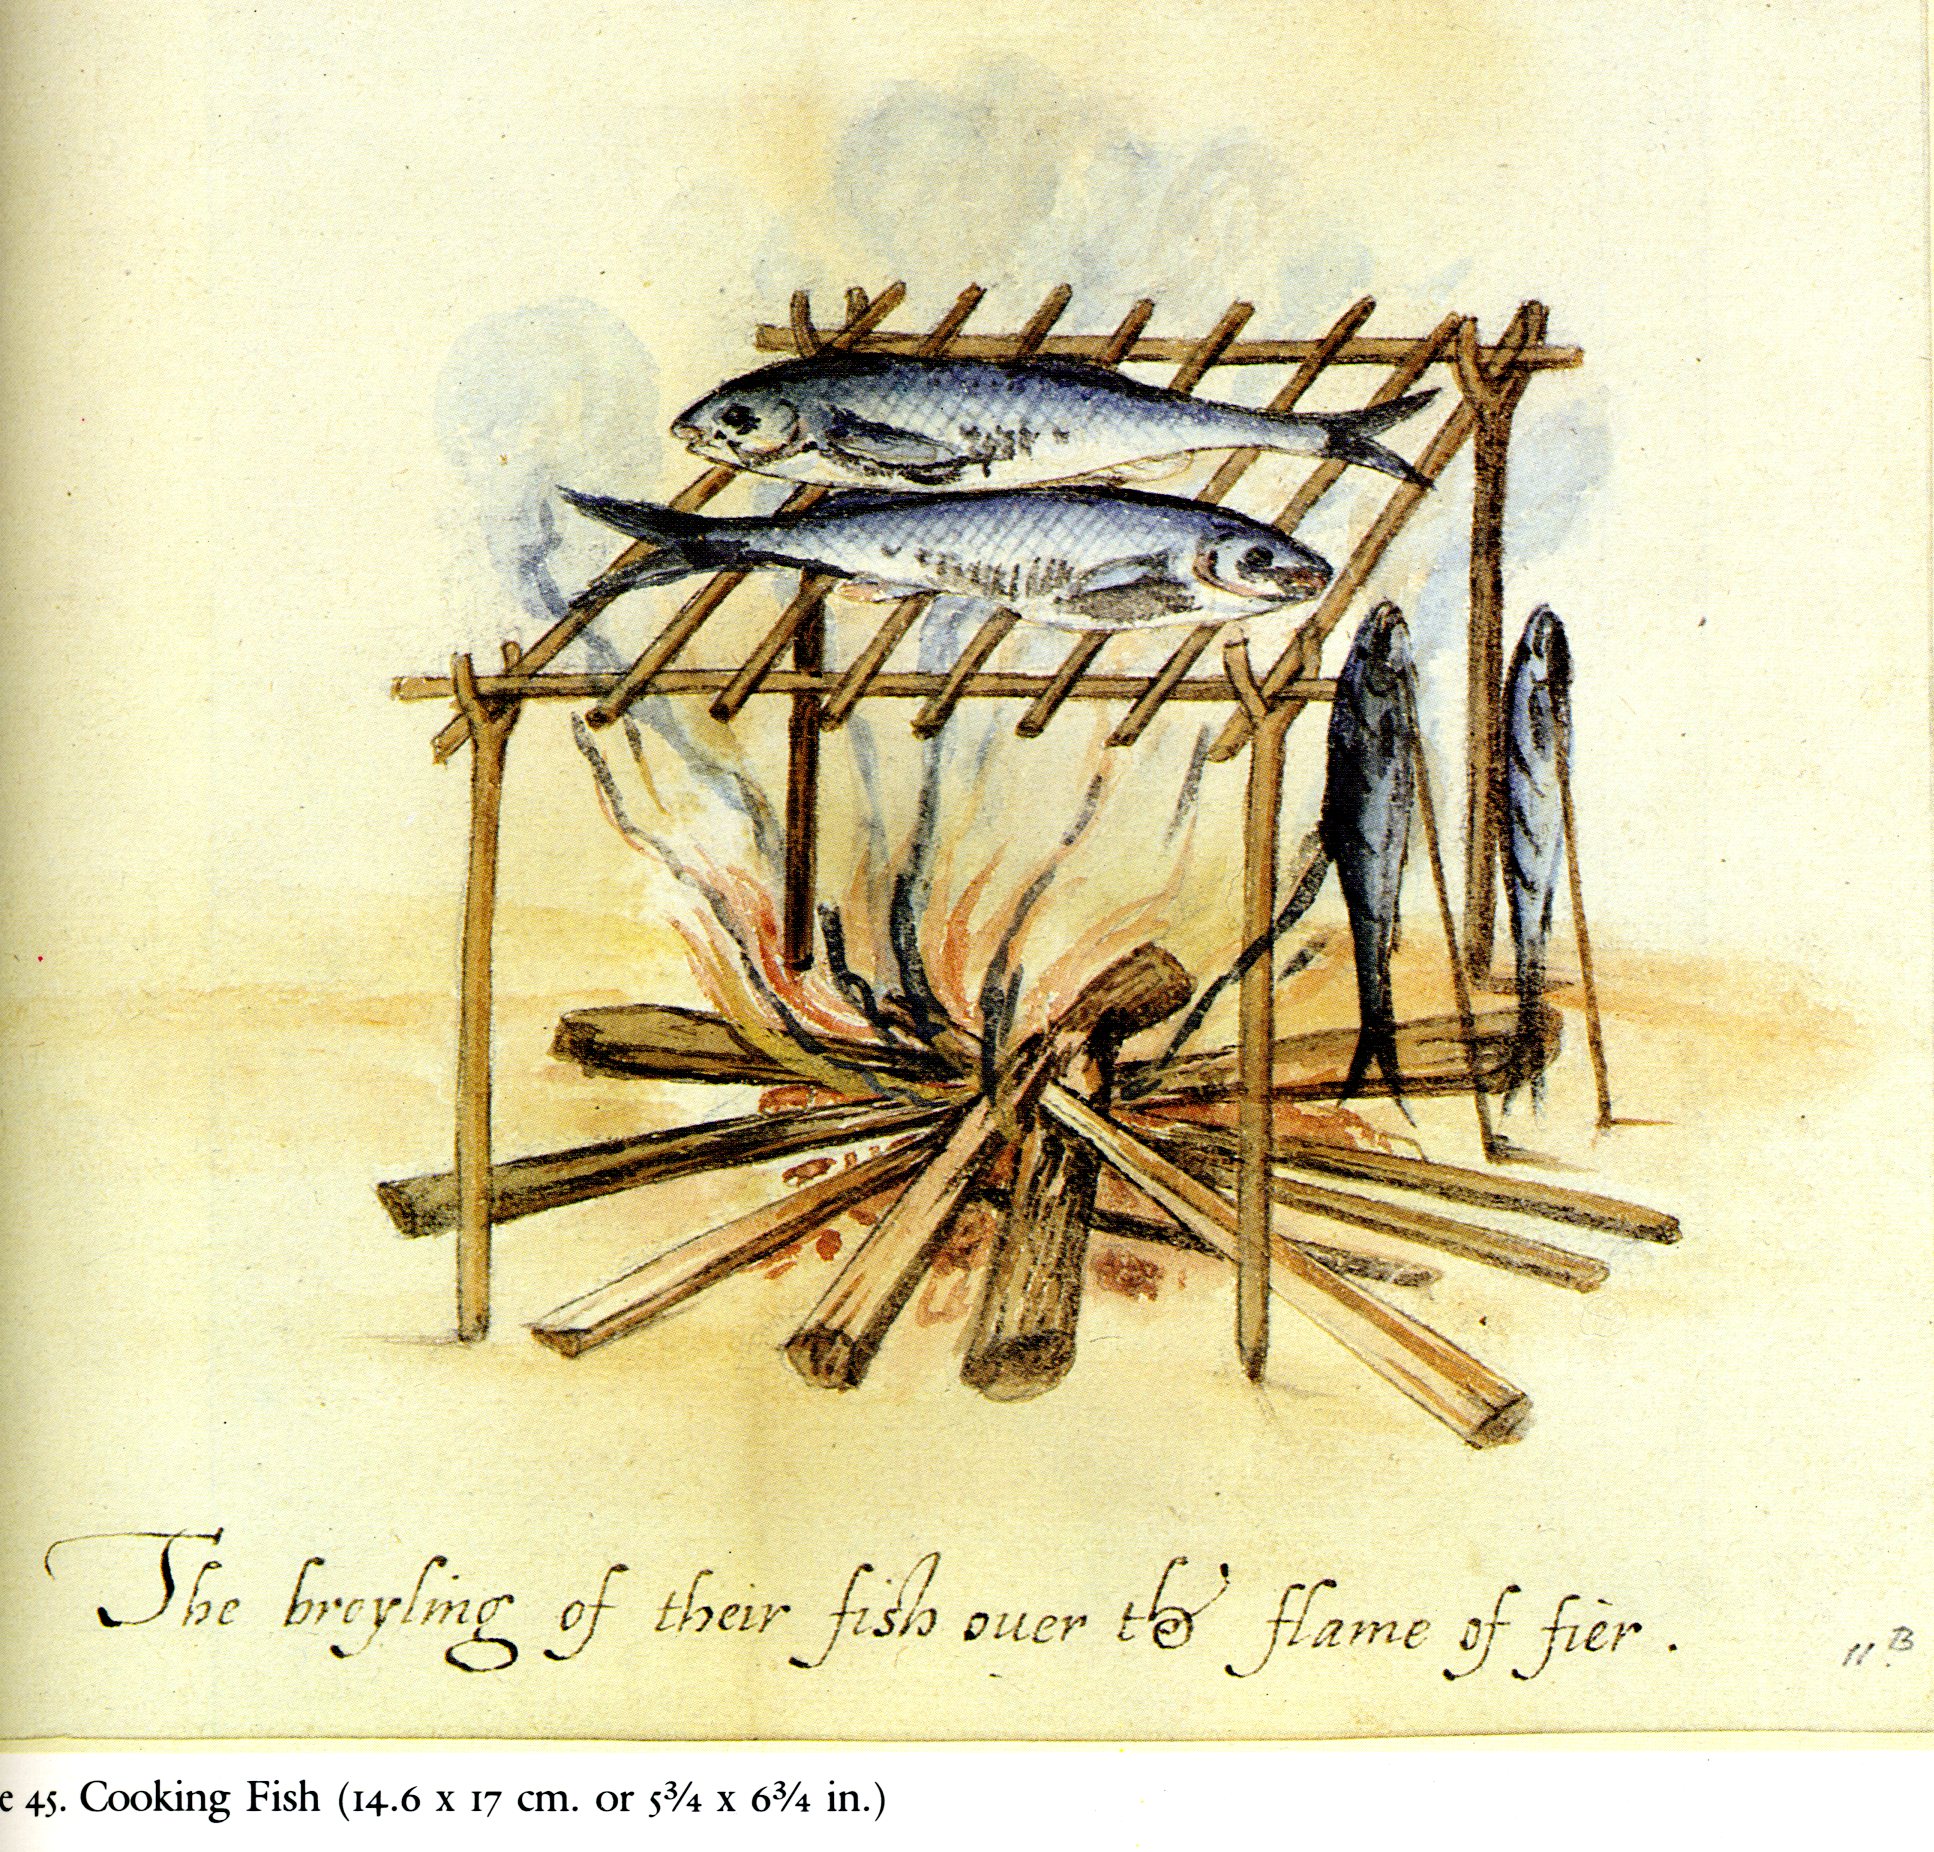 The broyling of their fish ouer the flame of fier .
11 B
e 45. Cooking Fish (14.6 x 17 cm. or 5¾ x 6¾ in.)